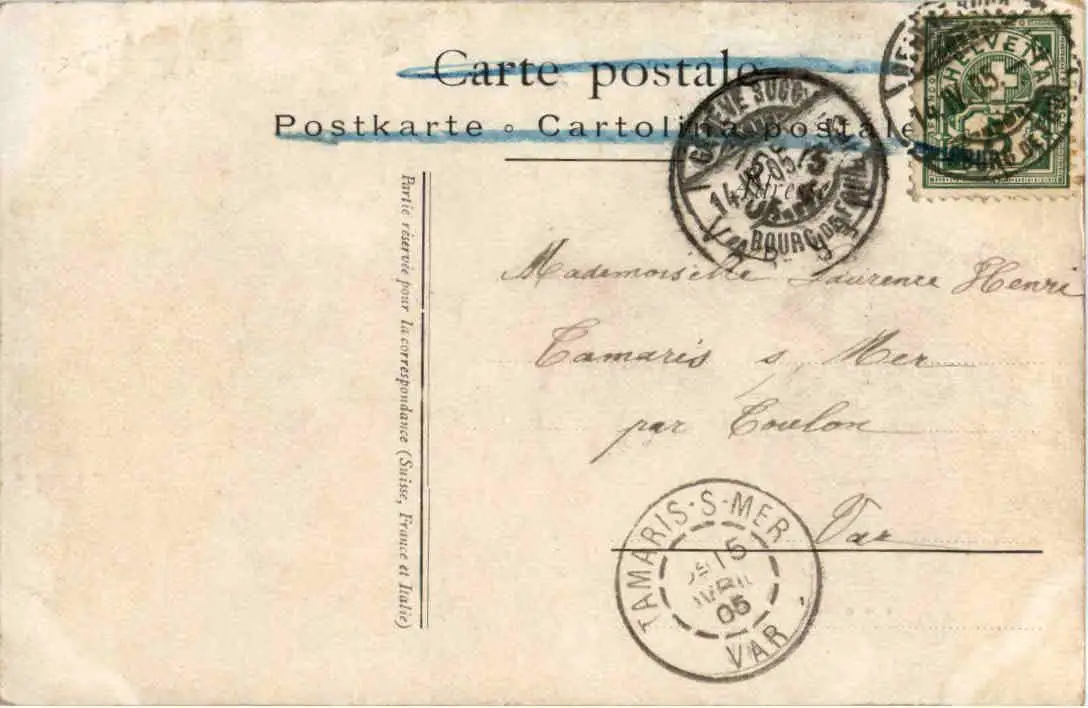 Carte postale
Postkarte o Cartolina postale
HELVETIA
5
GENÈVE SUCC.
14
05
BOURG DE FOUR
BOURG DE FOUR
Mademoiselle Laurence Henri
Tamaris s Mer
par Toulon
Var
TAMARIS-S-MER
15
AVRIL
05
VAR
Partie réservée pour la correspondance (Suisse, France et Italie)